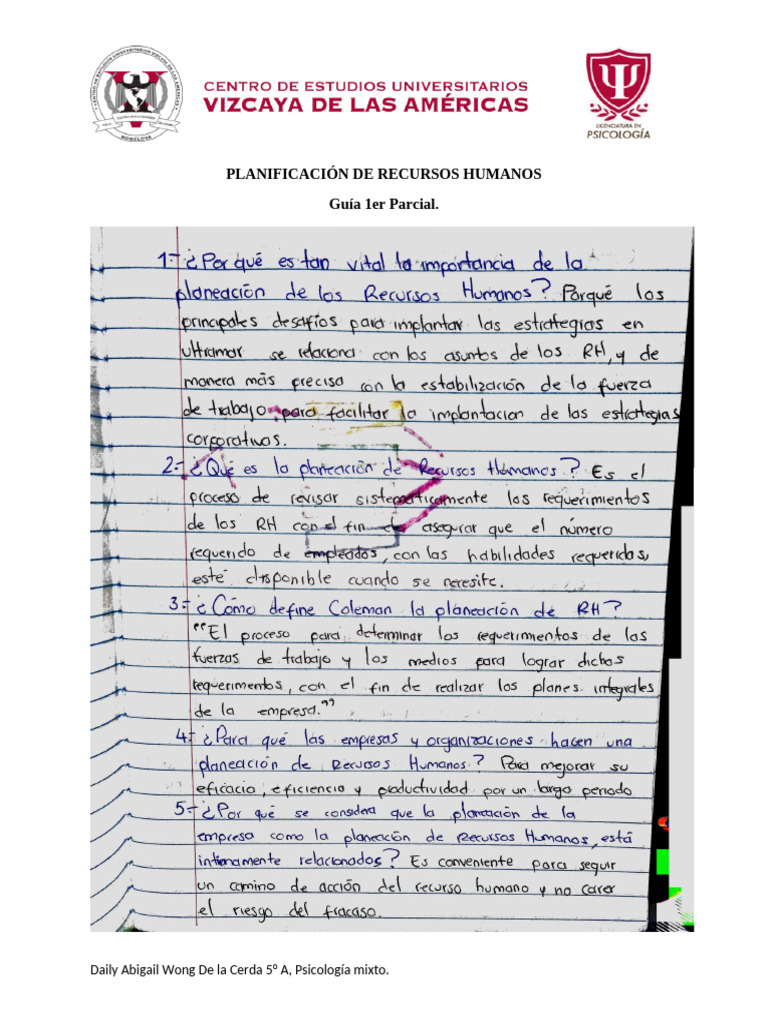 CENTRO DE ESTUDIOS UNIVERSITARIOS
VIZCAYA DE LAS AMÉRICAS
MONCLOVA
LICENCIATURA EN
PSICOLOGÍA
PLANIFICACIÓN DE RECURSOS HUMANOS
Guía 1er Parcial.
1.- ¿Por qué es tan vital la importancia de la
planeación de los Recursos Humanos? Porqué los
principales desafíos para implantar las estrategias en
ultramar se relaciona con los asuntos de los RH, y de
manera más precisa con la estabilización de la fuerza
de trabajo, para facilitar la implantacion de las estrategias
corporativas.
2.- ¿Qué es la planeación de Recursos Humanos? Es el
proceso de revisar sistematicamente los requerimientos
de los RH con el fin de asegurar que el número
requerido de empleados, con las habilidades requeridas,
esté disponible cuando se necesite.
3.- ¿Cómo define Coleman la planeación de RH?
"El proceso para determinar los requerimientos de las
fuerzas de trabajo y los medios para lograr dichos
requerimientos, con el fin de realizar los planes integrales
de la empresa."
4.- ¿Para qué las empresas y organizaciones hacen una
planeación de Recursos Humanos? Para mejorar su
eficacia, eficiencia y productividad por un largo periodo
5.- ¿Por qué se considera que la planeación de la
empresa como la planeación de Recursos Humanos, está
intimamente relacionados? Es conveniente para seguir
un camino de acción del recurso humano y no caer
el riesgo del fracaso.
Daily Abigail Wong De la Cerda 5º A, Psicología mixto.